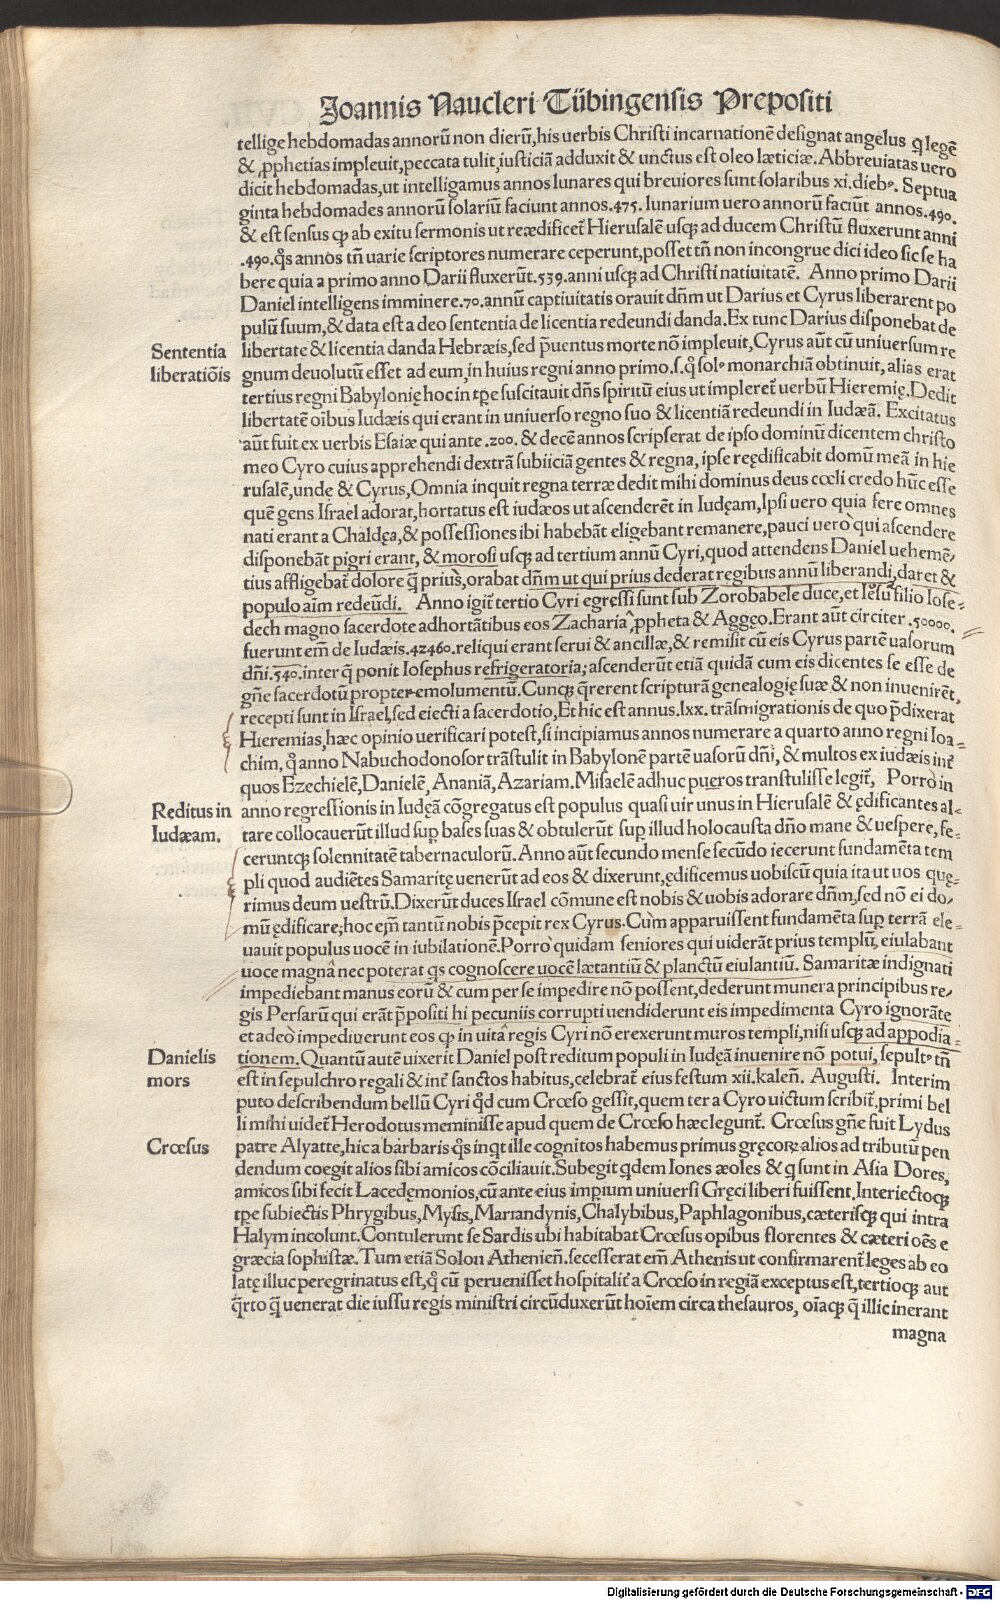 Joannis Naucleri Tübingensis Prepositi
tellige hebdomadas annorũ non dierũ, his uerbis Christi incarnationẽ designat angelus q̃ legẽ
& ꝓphetias impleuit, peccata tulit, iusticiã adduxit & unctus est oleo læticiæ. Abbreuiatas uero
dicit hebdomadas, ut intelligamus annos lunares qui breuiores sunt solaribus xi. dieb⁹. Septua
ginta hebdomades annorũ solariũ faciunt annos .475. lunarium uero annorũ faciũt annos .490.
& est sensus ꝙ ab exitu sermonis ut reædificet̃ Hierusalẽ usq̃ ad ducem Christũ fluxerunt anni
.490. q̃s annos tñ uarie scriptores numerare ceperunt, posset tñ non incongrue dici ideo sic se ha
bere quia a primo anno Darii fluxerũt .559. anni usq̃ ad Christi natiuitatẽ. Anno primo Darii
Daniel intelligens imminere .70. annũ captiuitatis orauit dñm ut Darius et Cyrus liberarent po
pulũ suum, & data est a deo sententia de licentia redeundi danda. Ex tunc Darius disponebat de
Sententia
liberatiõis
libertate & licentia danda Hebræis, sed p̃uentus morte nõ impleuit, Cyrus aũt cũ uniuersum re
gnum deuolutũ esset ad eum, in huius regni anno primo .s. q̃ sol⁹ monarchiã obtinuit, alias erat
tertius regni Babylonię hoc in tp̃e suscitauit dñs spiritũ eius ut impleret̃ uerbũ Hieremię. Dedit
libertatẽ oĩbus Iudæis qui erant in uniuerso regno suo & licentiã redeundi in Iudæã. Excitatus
aũt fuit ex uerbis Esaiæ qui ante .200. & decẽ annos scripserat de ipso dominũ dicentem christo
meo Cyro cuius apprehendi dextrã subiiciã gentes & regna, ipse ręedificabit domũ meã in hie
rusalẽ, unde & Cyrus, Omnia inquit regna terræ dedit mihi dominus deus cœli credo hũc esse
quẽ gens Israel adorat, hortatus est iudæos ut ascenderẽt in Iudęam, Ipsi uero quia fere omnes
nati erant a Chaldęa, & possessiones ibi habebãt eligebant remanere, pauci uero qui ascendere
disponebãt pigri erant, & morosi usq̃ ad tertium annũ Cyri, quod attendens Daniel uehemẽ/
tius affligebat̃ dolore q̃ prius, orabat dñm ut qui prius dederat regibus annũ liberandi, daret &
populo aĩm redeũdi. Anno igit̃ tertio Cyri egressi sunt sub Zorobabele duce, et Iesu filio Iose-
dech magno sacerdote adhortãtibus eos Zacharia ꝓpheta & Aggęo. Erant aũt circiter .50000.
fuerunt em̃ de Iudæis .42460. reliqui erant serui & ancillæ, & remisit cũ eis Cyrus partẽ uasorum
dñi .540. inter q̃ ponit Iosephus refrigeratoria; ascenderũt etiã quidã cum eis dicentes se esse de
gñe sacerdotũ propter emolumentũ. Cunq̃ q̃rerent scripturã genealogię suæ & non inuenirẽt,
recepti sunt in Israel, sed eiecti a sacerdotio, Et hic est annus .lxx. trãsmigrationis de quo p̃dixerat
Hieremias, hæc opinio uerificari potest, si incipiamus annos numerare a quarto anno regni Ioa-
chim, q̃ anno Nabuchodonosor trãstulit in Babylonẽ partẽ uasorũ dñi, & multos ex iudæis int̃
quos Ezechielẽ, Danielẽ, Ananiã, Azariam. Misaelẽ adhuc pueros transtulisse legit̃, Porro in
Reditus in
Iudæam.
anno regressionis in Iudęã cõgregatus est populus quasi uir unus in Hierusalẽ & ędificantes al-
tare collocauerũt illud sup bases suas & obtulerũt sup illud holocausta dño mane & uespere, fe-
ceruntq̃ solennitatẽ tabernaculorũ. Anno aũt secundo mense secũdo iecerunt fundamẽta tem
pli quod audiẽtes Samaritę uenerũt ad eos & dixerunt, ędificemus uobiscũ quia ita ut uos quę-
rimus deum uestrũ. Dixerũt duces Israel cõmune est nobis & uobis adorare dñm, sed nõ ei do/
mũ ędificare; hoc em̃ tantũ nobis p̃cepit rex Cyrus. Cum apparuissent fundamẽta sup terrã ele-
uauit populus uocẽ in iubilationẽ. Porro quidam seniores qui uiderãt prius templũ, eiulabant
uoce magnâ nec poterat q̃s cognoscere uocẽ lætantiũ & planctũ eiulantiũ. Samaritæ indignati
impediebant manus eorũ & cum per se impedire nõ possent, dederunt munera principibus re/
gis Persarũ qui erãt p̃positi hi pecuniis corrupti uendiderunt eis impedimenta Cyro ignorãte
et adeo impediuerunt eos ꝙ in uita regis Cyri nõ erexerunt muros templi, nisi usq̃ ad appodia-
Danielis
mors
tionem. Quantũ autẽ uixerit Daniel post reditum populi in Iudęã inuenire nõ potui, sepult⁹ tñ
est in sepulchro regali & int̃ sanctos habitus, celebrat̃ eius festum xii. kaleñ. Augusti. Interim
puto describendum bellũ Cyri q̃d cum Crœso gessit, quem ter a Cyro uictum scribit̃, primi bel
li mihi uidet̃ Herodotus meminisse apud quem de Crœso hæc legunt̃. Crœsus gñe fuit Lydus
Crœsus
patre Alyatte, hic a barbaris q̃s inq̃t ille cognitos habemus primus gręcoꝝ alios ad tributũ pen
dendum coegit alios sibi amicos cõciliauit. Subegit q̃dem Iones æoles & q̃ sunt in Asia Dores,
amicos sibi fecit Lacedęmonios, cũ ante eius imp̃ium uniuersi Gręci liberi fuissent, Interiectoq̃
tp̃e subiectis Phrygibus, Mysis, Marrandynis, Chalybibus, Paphlagonibus, cæterisq̃ qui intra
Halym incolunt. Contulerunt se Sardis ubi habitabat Crœsus opibus florentes & cæteri oẽs e
græcia sophistæ. Tum etiã Solon Athenieñ. secesserat em̃ Athenis ut confirmarent̃ leges ab eo
latę illuc peregrinatus est, q̃ cũ peruenisset hospitalit̃ a Crœso in regiã exceptus est, tertioq̃ aut
q̃rto q̃ uenerat die iussu regis ministri circũduxerũt hoĩem circa thesauros, oĩaq̃ q̃ illic inerant
magna
Digitalisierung gefördert durch die Deutsche Forschungsgemeinschaft - DFG